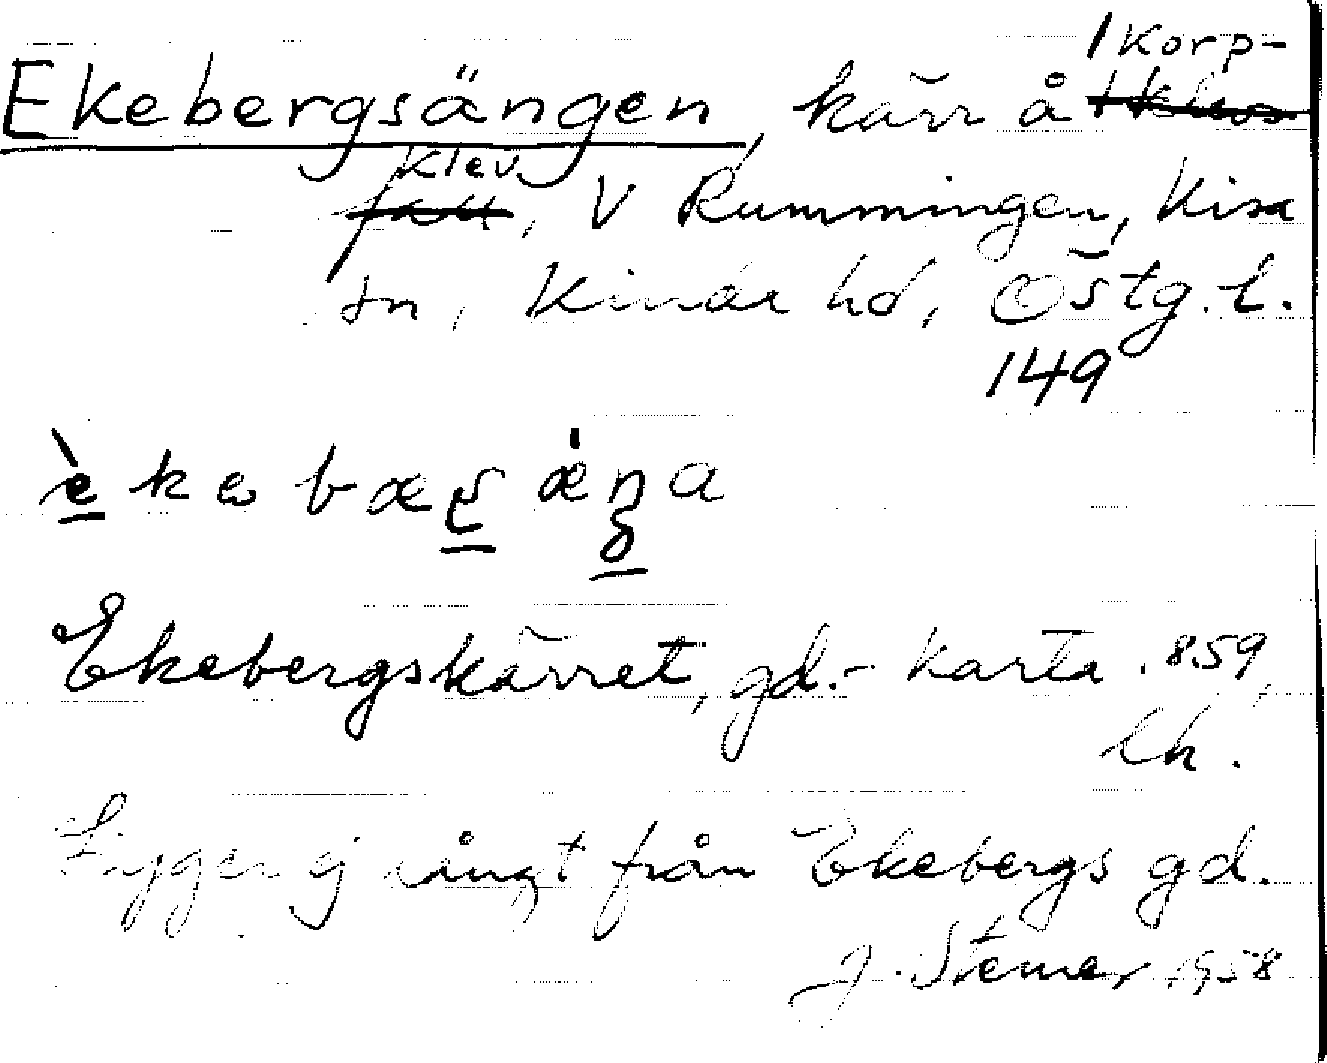 Ekebergsängen, kärr å 1 Korp-
klev, V Rummingen, Kisa
sn, Kinda hd, Östg. l.
149
Ekebergskärret, gd.- karta 1859,
lh.
Ligger ej långt från Ekebergs gd.
J. Stemer 1958